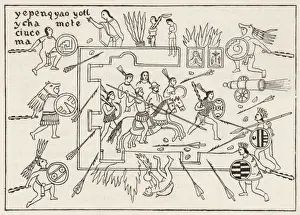 yepenqyaoyotl
ycha mote
ciuco
ma